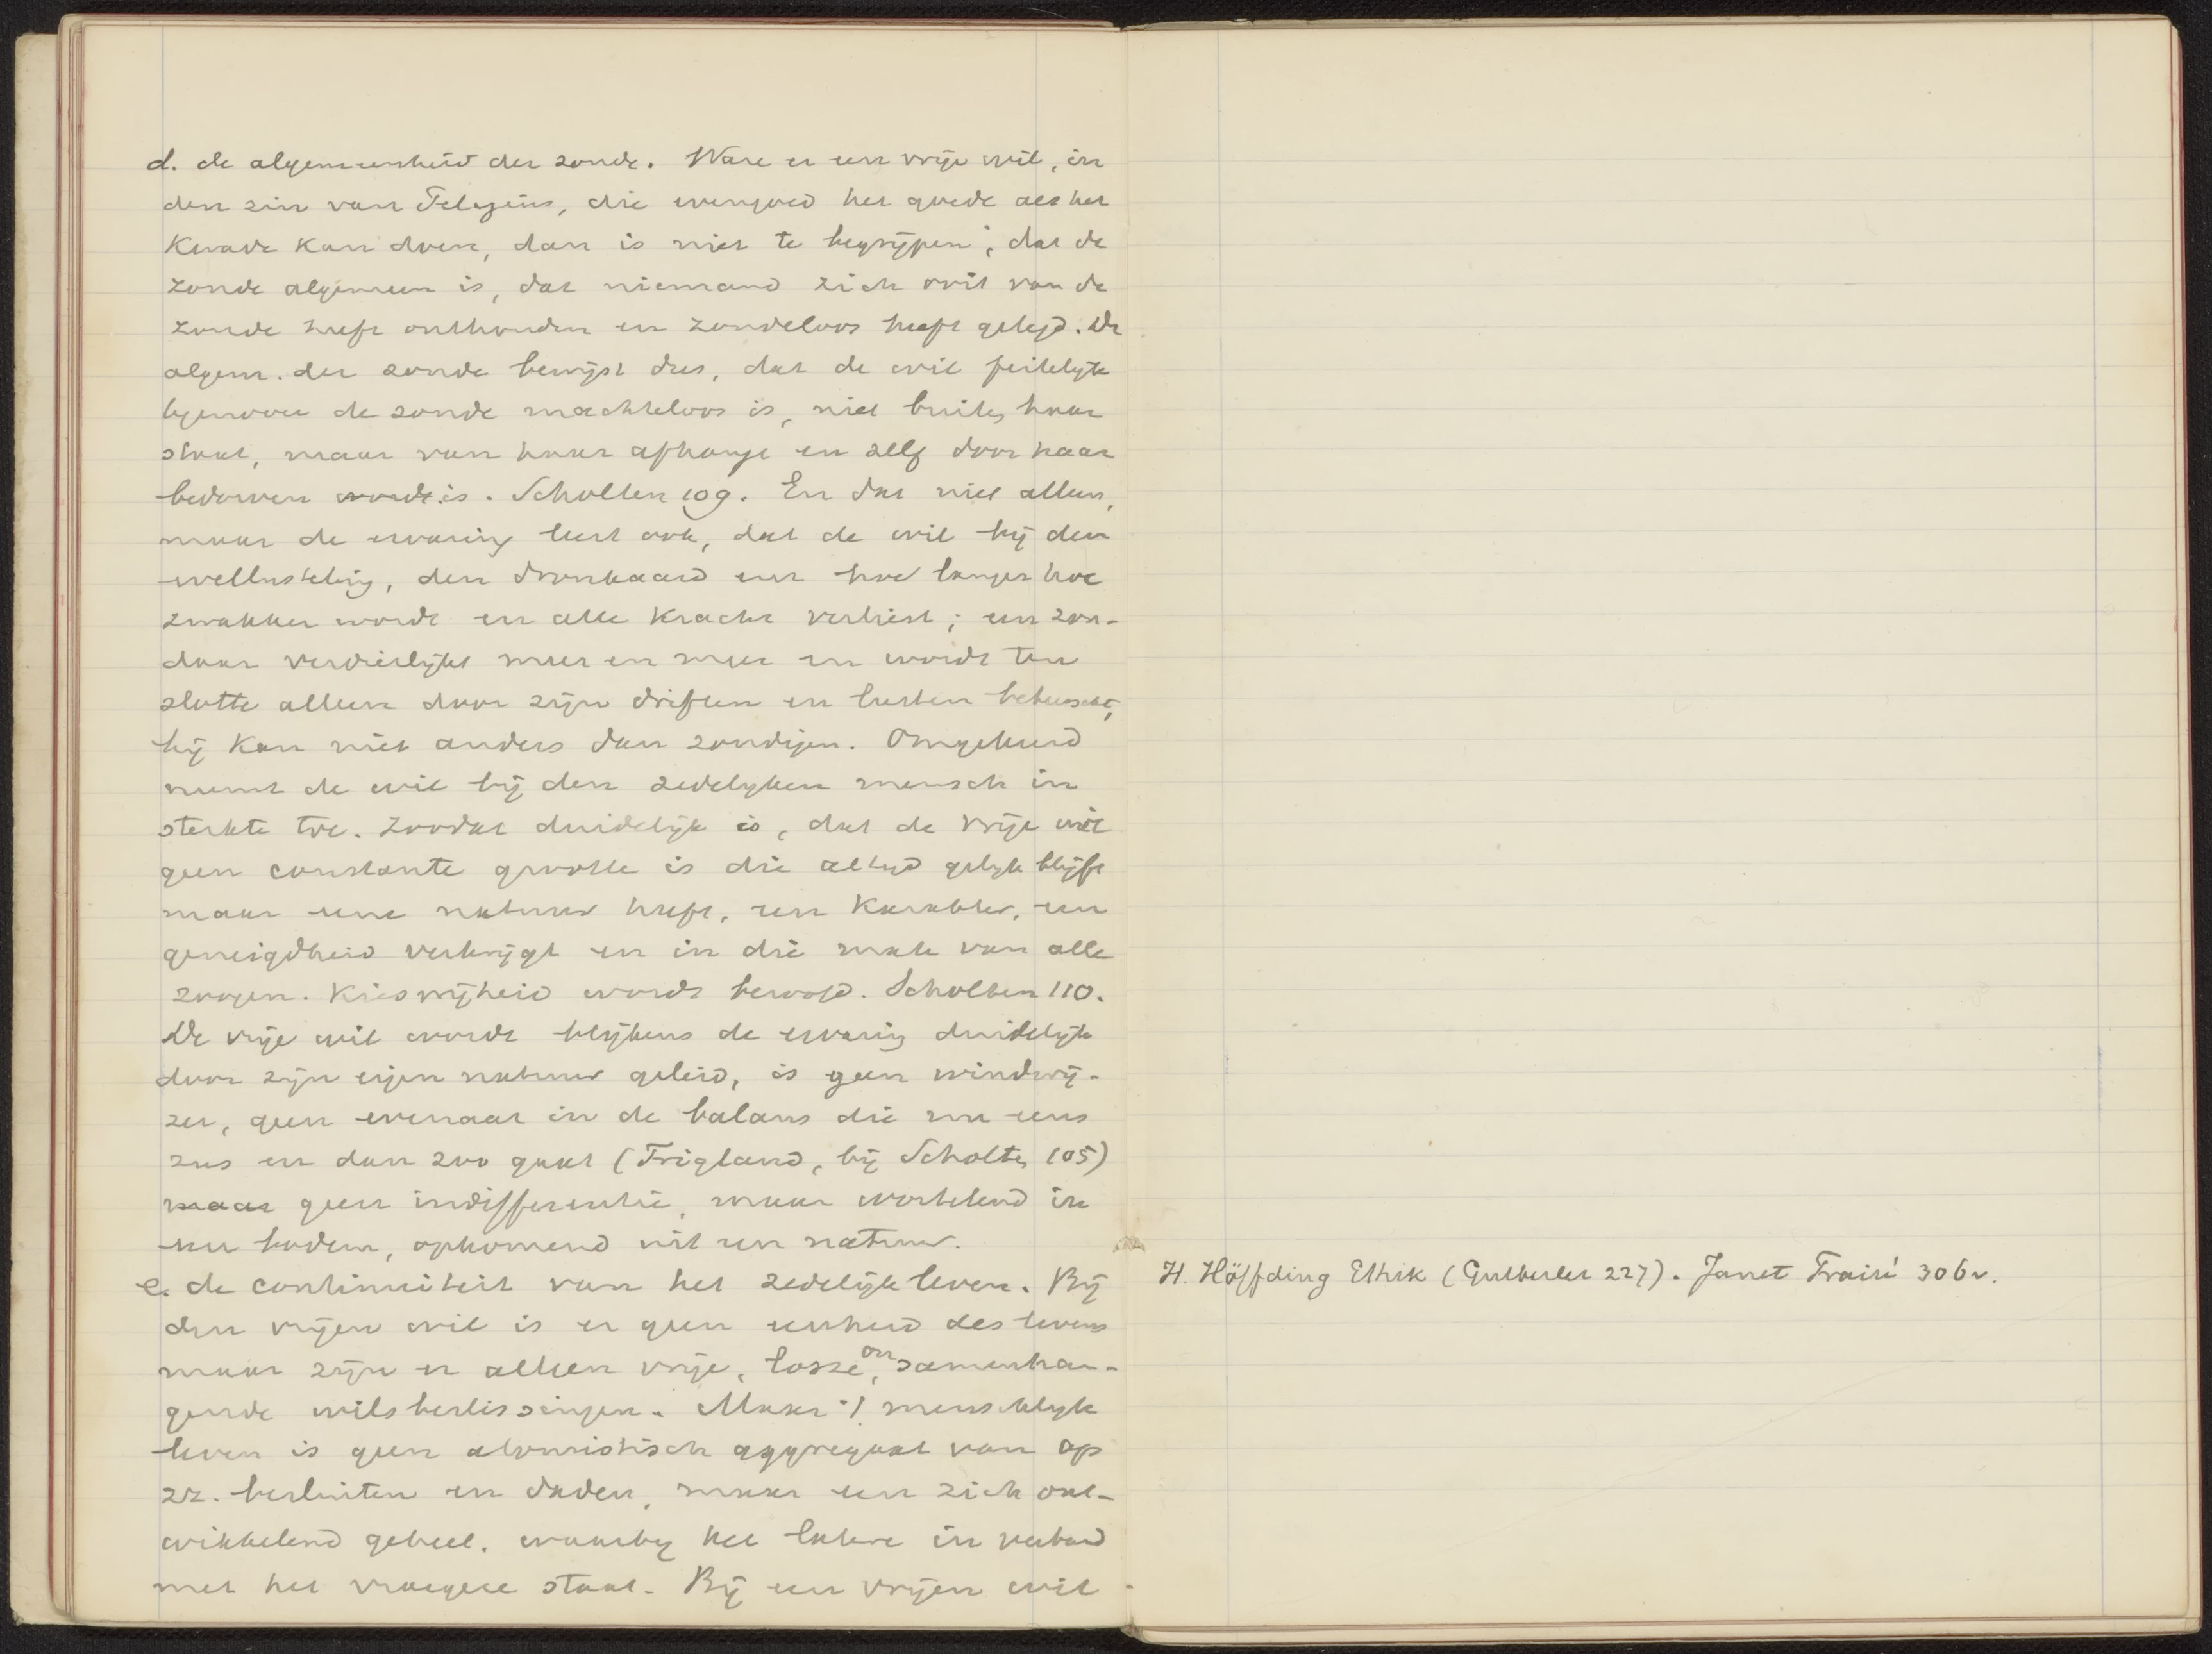 d. de algemeenheid der zonde. Ware er een vrije wil, in
den zin van Pelagius, die evengoed het goede als het
kwade kan doen, dan is niet te begrijpen, dat de
zonde algemeen is, dat niemand zich ooit van de
zonde heeft onthouden en zondeloos heeft geleefd. De
algem. der zonde bewijst dus, dat de wil feitelijk
tegenover de zonde machteloos is, niet buiten haar
staat, maar van haar afhangt en zelf door haar
bedorven wordt is. Scholten 109. En dat niet alleen,
maar de ervaring leert ook, dat de wil bij den
wellusteling, den dronkaard enz hoe langer hoe
zwakker wordt en alle kracht verliest; een zon-
daar verdierlijkt meer en meer en wordt ten
slotte alleen door zijn driften en lusten beheerscht,
hij kan niet anders dan zondigen. Omgekeerd
neemt de wil bij den zedelijken mensch in
sterkte toe. Zoodat duidelijk is, dat de vrije wil
geen constante grootte is die altijd gelijk blijft
maar eene natuur heeft, een karakter, een
geneigdheid verkrijgt en in die mate van alle
zoogen. Kiesvrijheid wordt beroofd. Scholten 110.
De vrije wil wordt blijkens de ervaring duidelijk
door zijn eigen natuur geleid, is geen windwij-
zer, geen evenaar in de balans die nu eens
zus en dan zoo gaat (Trigland, bij Scholten 105)
maar geen indifferentie, maar wortelend in
een bodem, opkomend uit een natuur.
e. de continuiteit van het zedelijk leven. Bij
den vrijen wil is er geen eenheid des levens
maar zijn er alleen vrije, losse, onsamenhan-
gende wilsbeslissingen. Maar 't menschelijk
leven is geen atomistisch aggregaat van op
zz. besluiten en daden, maar een zich ont-
wikkelend geheel. waarbij het latere in verband
met het vroegere staat. Bij een vrijen wil
H. Höffding Ethik (Gutberlet 227). Janet Traité 306v.